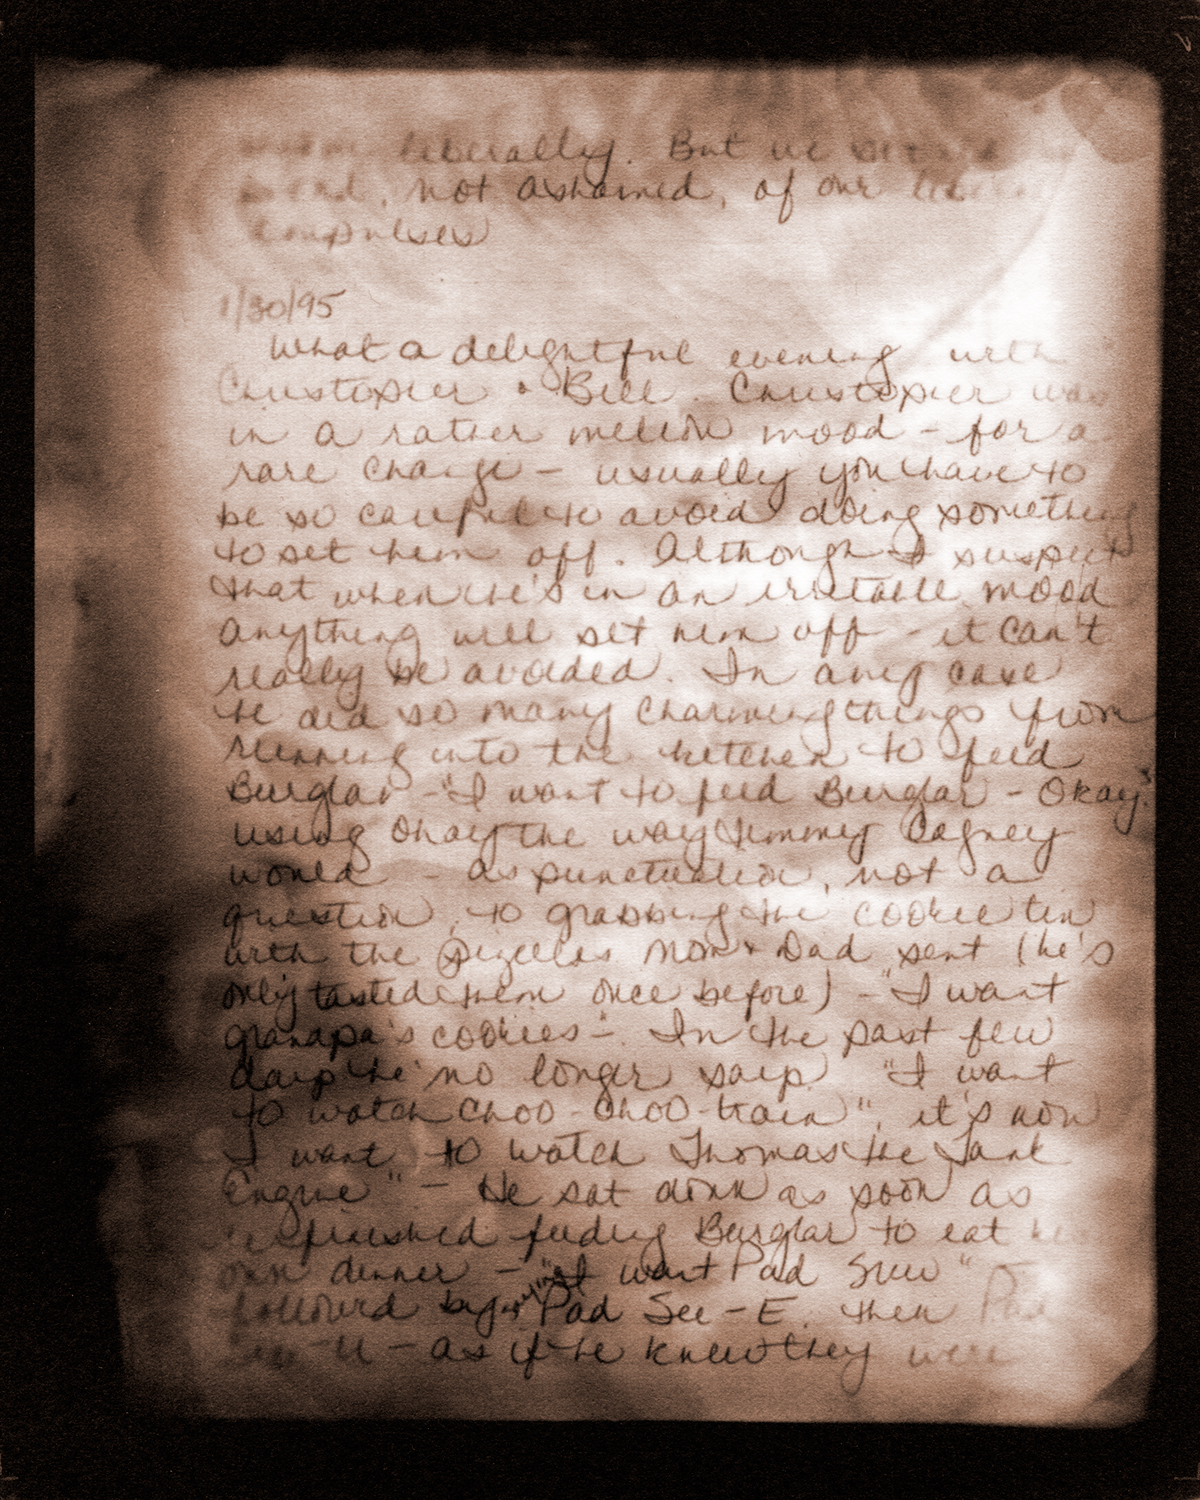 liberally. But we
not ashamed, of our
impulses
1/30/95
What a delightful evening with
Christopher & Bill. Christopher was
in a rather mellow mood - for a
rare change - usually you have to
be so careful to avoid doing something
to set him off. Although I suspect
that when he's in an irritable mood
anything will set him off - it can't
really be avoided. In any case
he did so many charming things from
running into the kitchen to feed
Burglar - "I want to feed Burglar - Okay."
using Okay the way Jimmy Cagney
would - as punctuation, not a
question, to grabbing the cookie tin
with the pizelles Mom & Dad sent (he's
only tasted them once before) - "I want
grandpa's cookies" -. In the past few
days he no longer says "I want
to watch choo-choo-train", it's now
I want to watch Thomas the Tank
Engine" - He sat down as soon as
finished feeding Burglar to eat his
own dinner - "I want Pad Suw"
followed by Pad See-E. then Pad
U - as if he knew they were